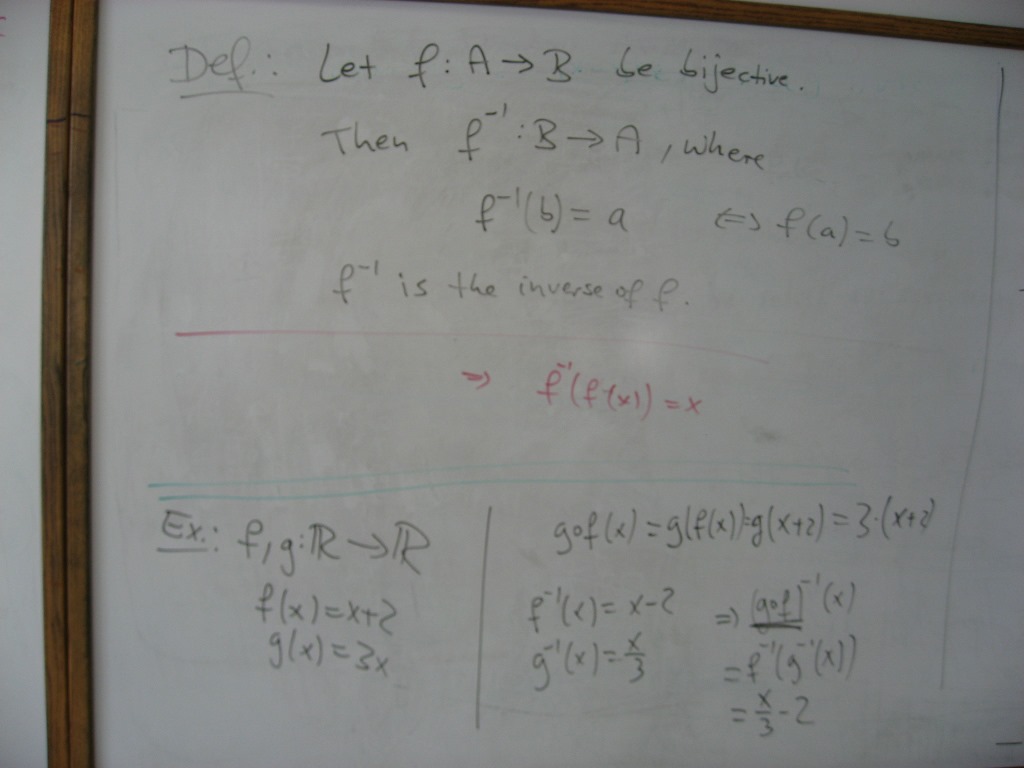 Def.: Let f: A → B be bijective.
Then f⁻¹: B → A, where
f⁻¹(b) = a ⇔ f(a) = b
f⁻¹ is the inverse of f.
⇒ f⁻¹(f(x)) = x
Ex.: f, g: ℝ → ℝ
f(x) = x+2
g(x) = 3x
g∘f(x) = g(f(x)) = g(x+2) = 3·(x+2)
f⁻¹(x) = x-2
g⁻¹(x) = x/3
⇒ (g∘f)⁻¹(x)
= f⁻¹(g⁻¹(x))
= x/3 - 2